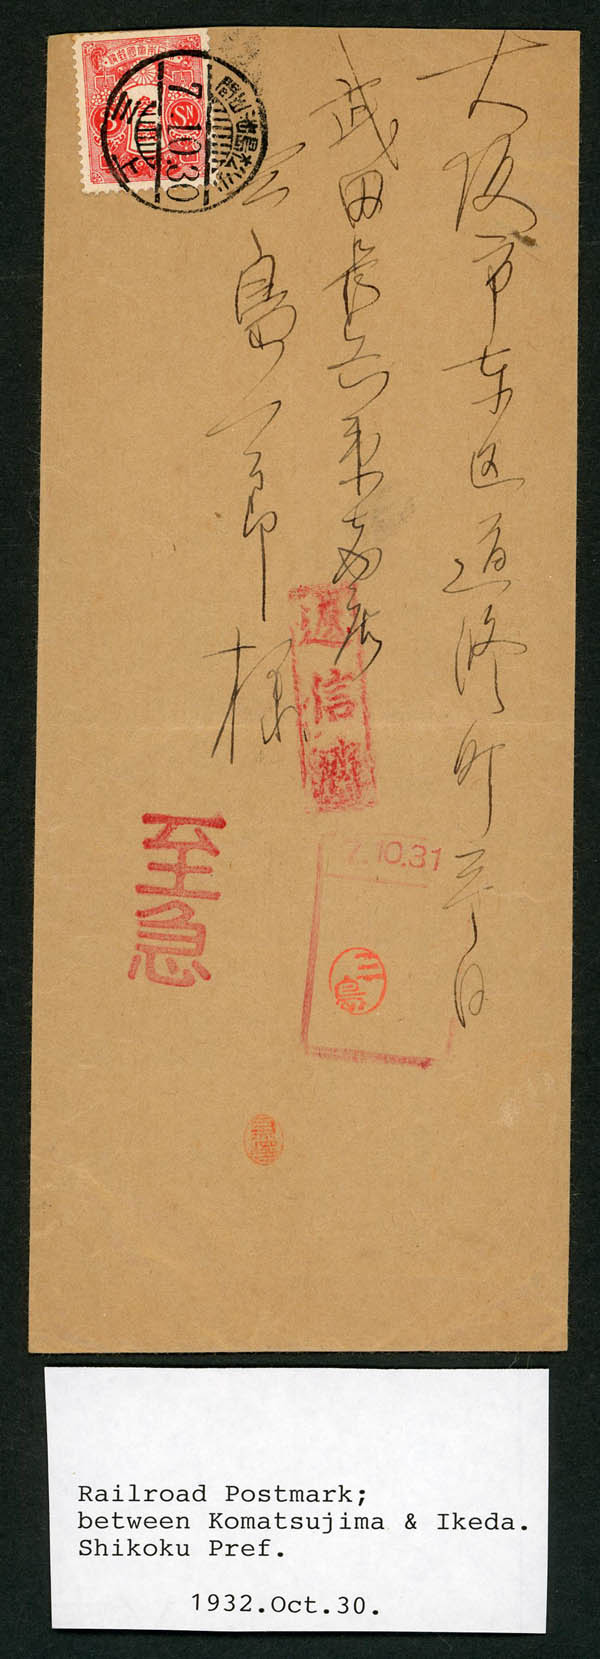 大阪市東区道修町
武田長兵衛商店
三島一郎様
小松島池田間
7.10.30
上
返信濟
至急
7.10.31
三島
Railroad Postmark;
between Komatsujima & Ikeda.
Shikoku Pref.
1932.Oct.30.